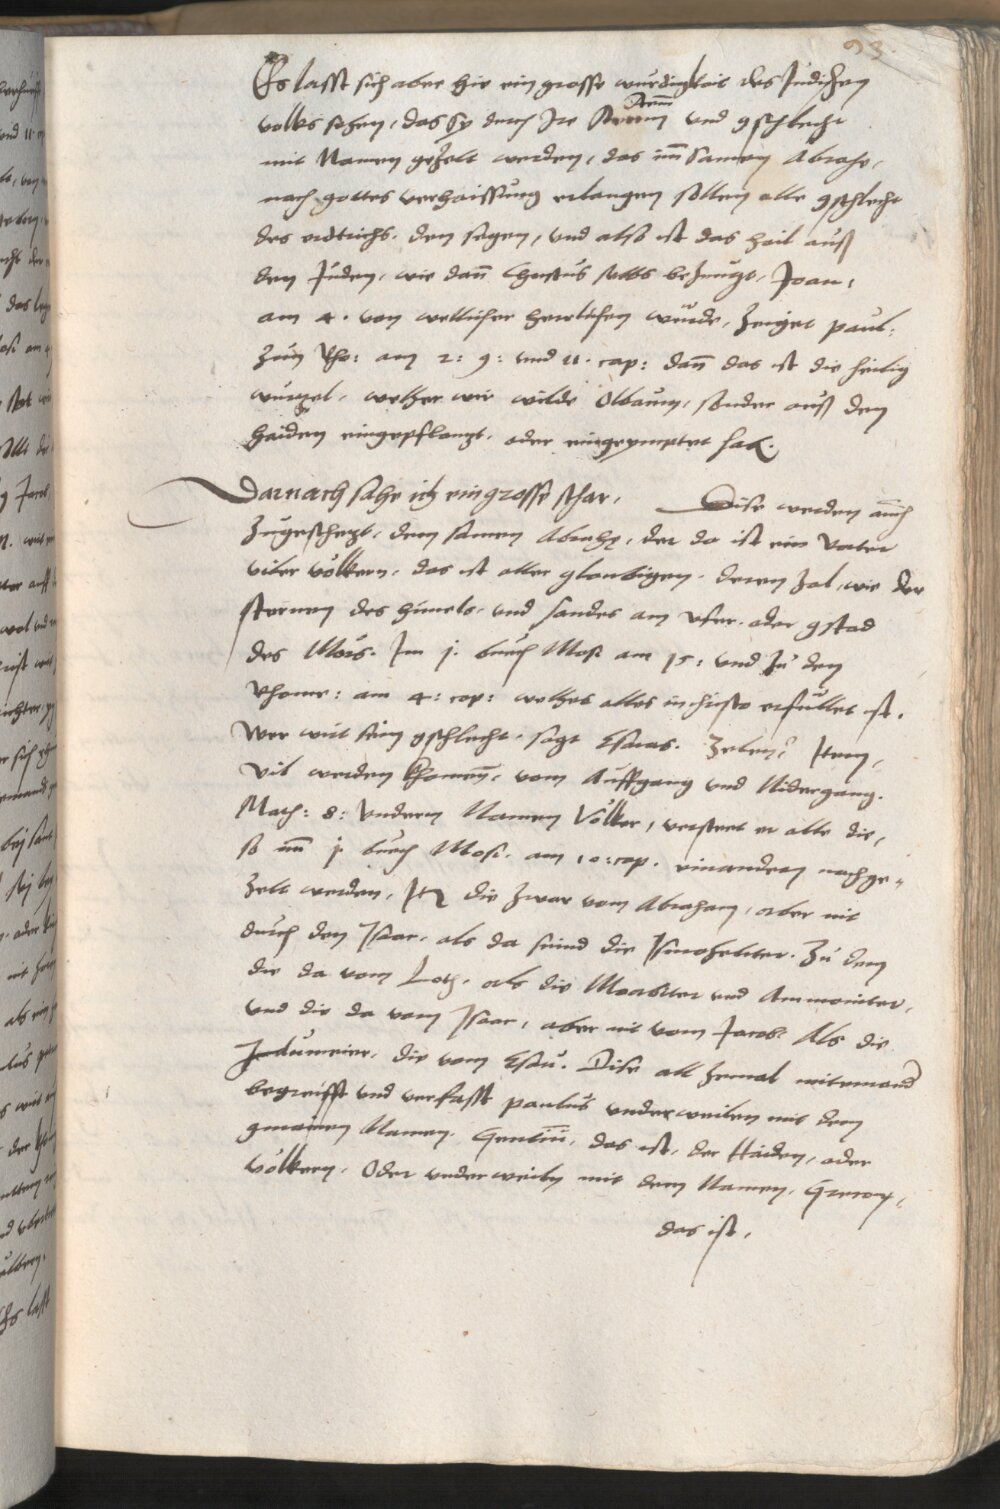 93.
Es lasst sich aber hie ein grosse wurdigkait des Judischen
volks sehen, das sy durch Ire Stemm und gschlecht
mit Namen gezelt werden, das im Samen Abrahe,
nach gottes verhaissung erlangen sollen alle gschlecht
des erdtrichs. den segen, und also ist das hail auß
den Juden, wie dann Christus selbs bezeugt, Joan:
am 4. von wellicher herrlichen würde, zeiget paul:
zun Rho: am 2: 9: und 11. cap: dann das ist die heilig
wurtzel, welcher wir wilde Olbaum, sonder auß den
haiden eingepflantzt, oder eingeymptet hat.
Darnach sahe ich ein grosse schar. Dise werden auch
zugeschetzt, dem samen Abrahę, der do ist ein vater
viler völkern, das ist aller gloubigen, deren zal, wie der
sternen des himels, und sandes am ufer oder gstad
des Mörs. Im 1. buch Mosi am 15: und zu den
Rhomr: am 4: cap: welches alles in christo erfüllet ist.
Wer wirt sein gschlecht, sagt Esaias. Zelen? Item,
Vil werden khomen, vom Auffgang und Nidergang.
Math: 8: Undern Namen Völker, versteet er alle die,
so im 1. buch Mosi. am 10: cap. einandern nachge-
zelt werden, Itē die zwar vom Abraham, aber nit
durch den Isaac, als da seind die Ismaheliter. Zu dem
die da vom Loth, als die Moabiter und Ammoniter,
und die da vom Isaac, aber nit vom Jacob. Als die
Idumeier, die vom Esau. Dise all zemal miteinand
begreifft und verfasst paulus underweilen mit dem
gmainen Namen, Gentiū, das ist, der Haiden, oder
völkern. Oder underweiln mit dem Namen, Grecorꝝ,
das ist,